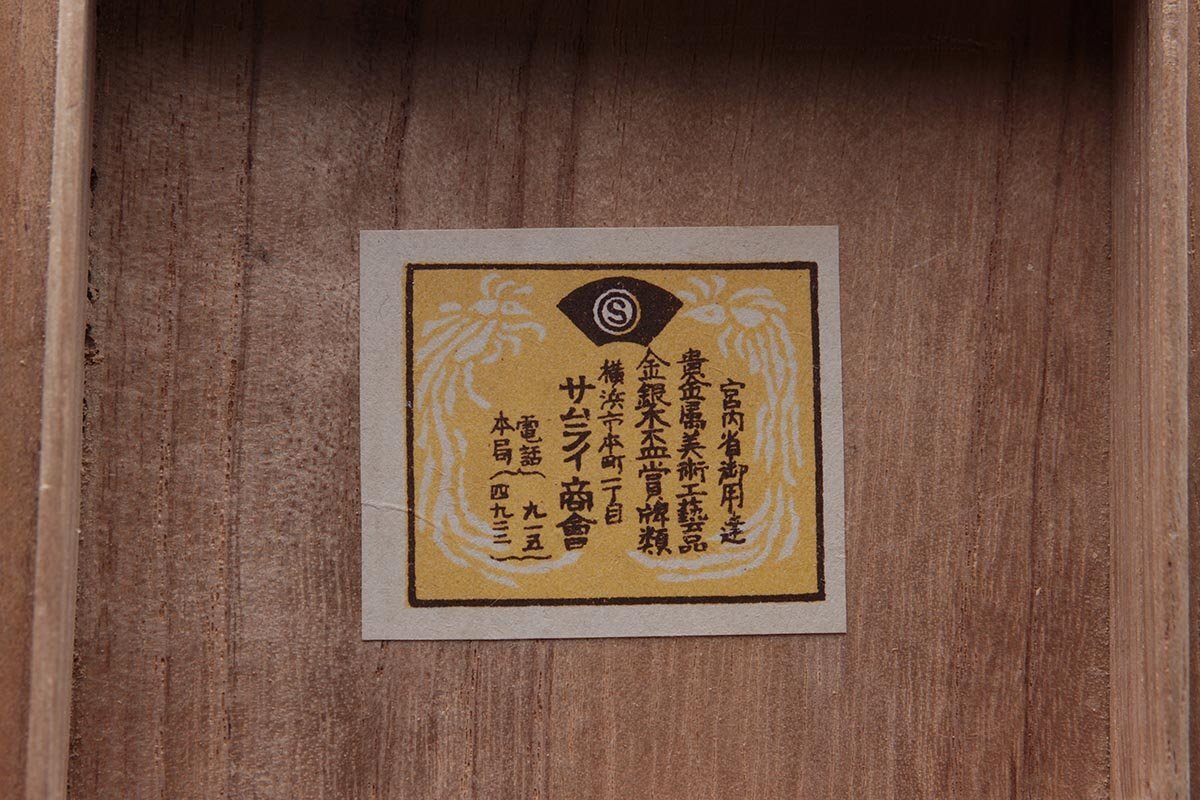 S
宮内省御用達
貴金属美術工藝品
金銀木盃賞牌類
横浜市本町一丁目
サムライ商會
電話 九一五
本局 四九二二